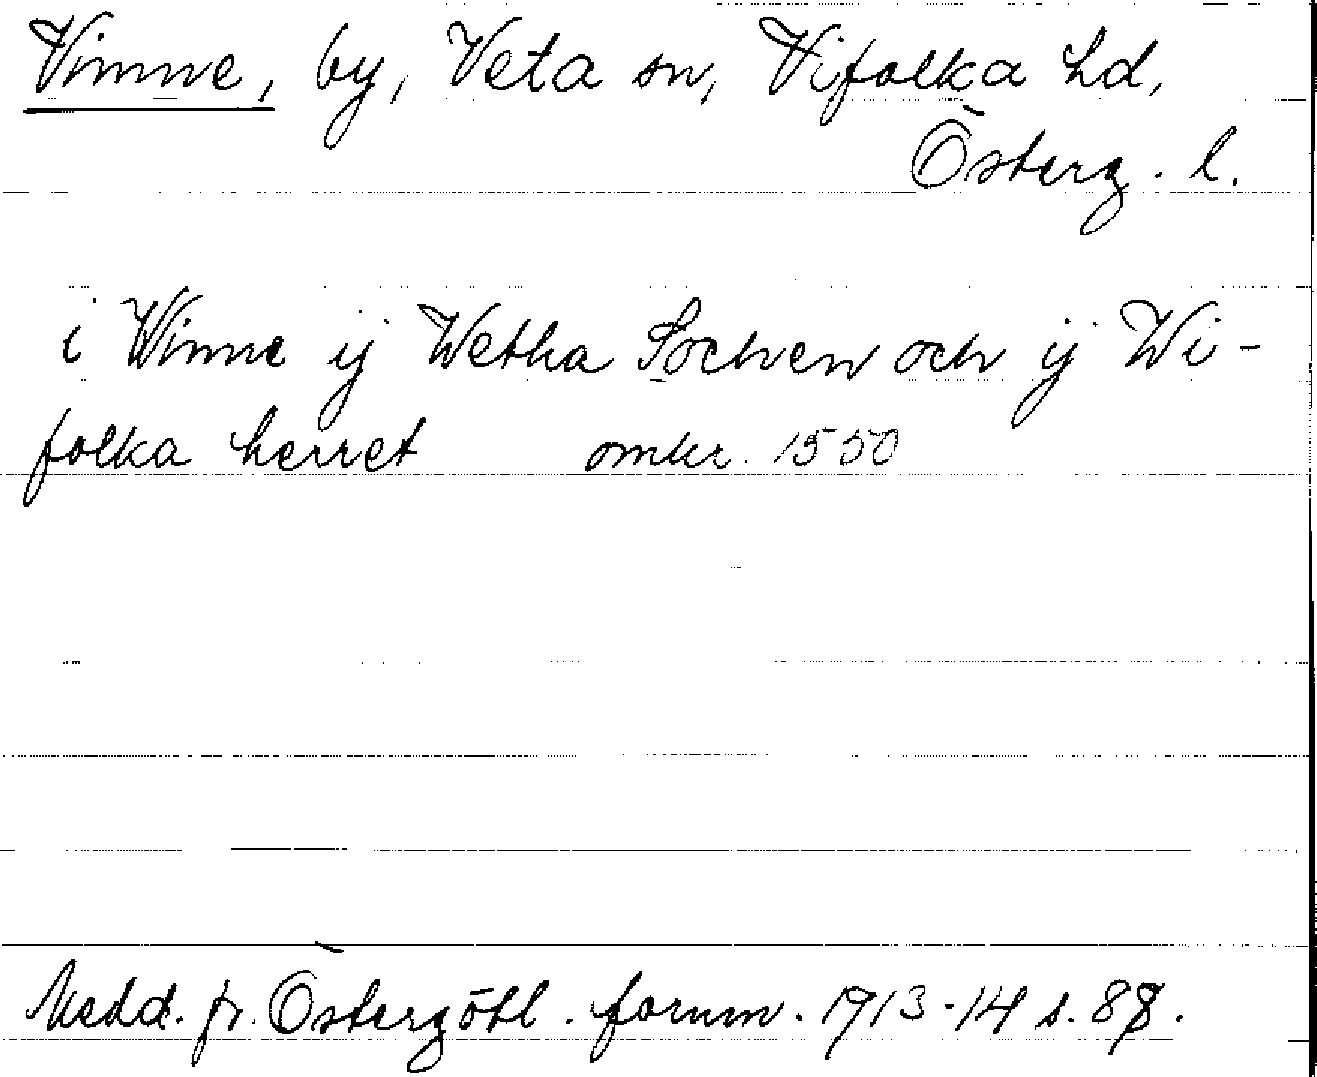 Vinnne, by, Veta sn, Vifolka hd,
Österg. l.
i Winne ij Wetha Sochen och ij Wi-
folka herret omkr. 1550
Medd. fr. Östergötl. fornm. 1913-14 s.